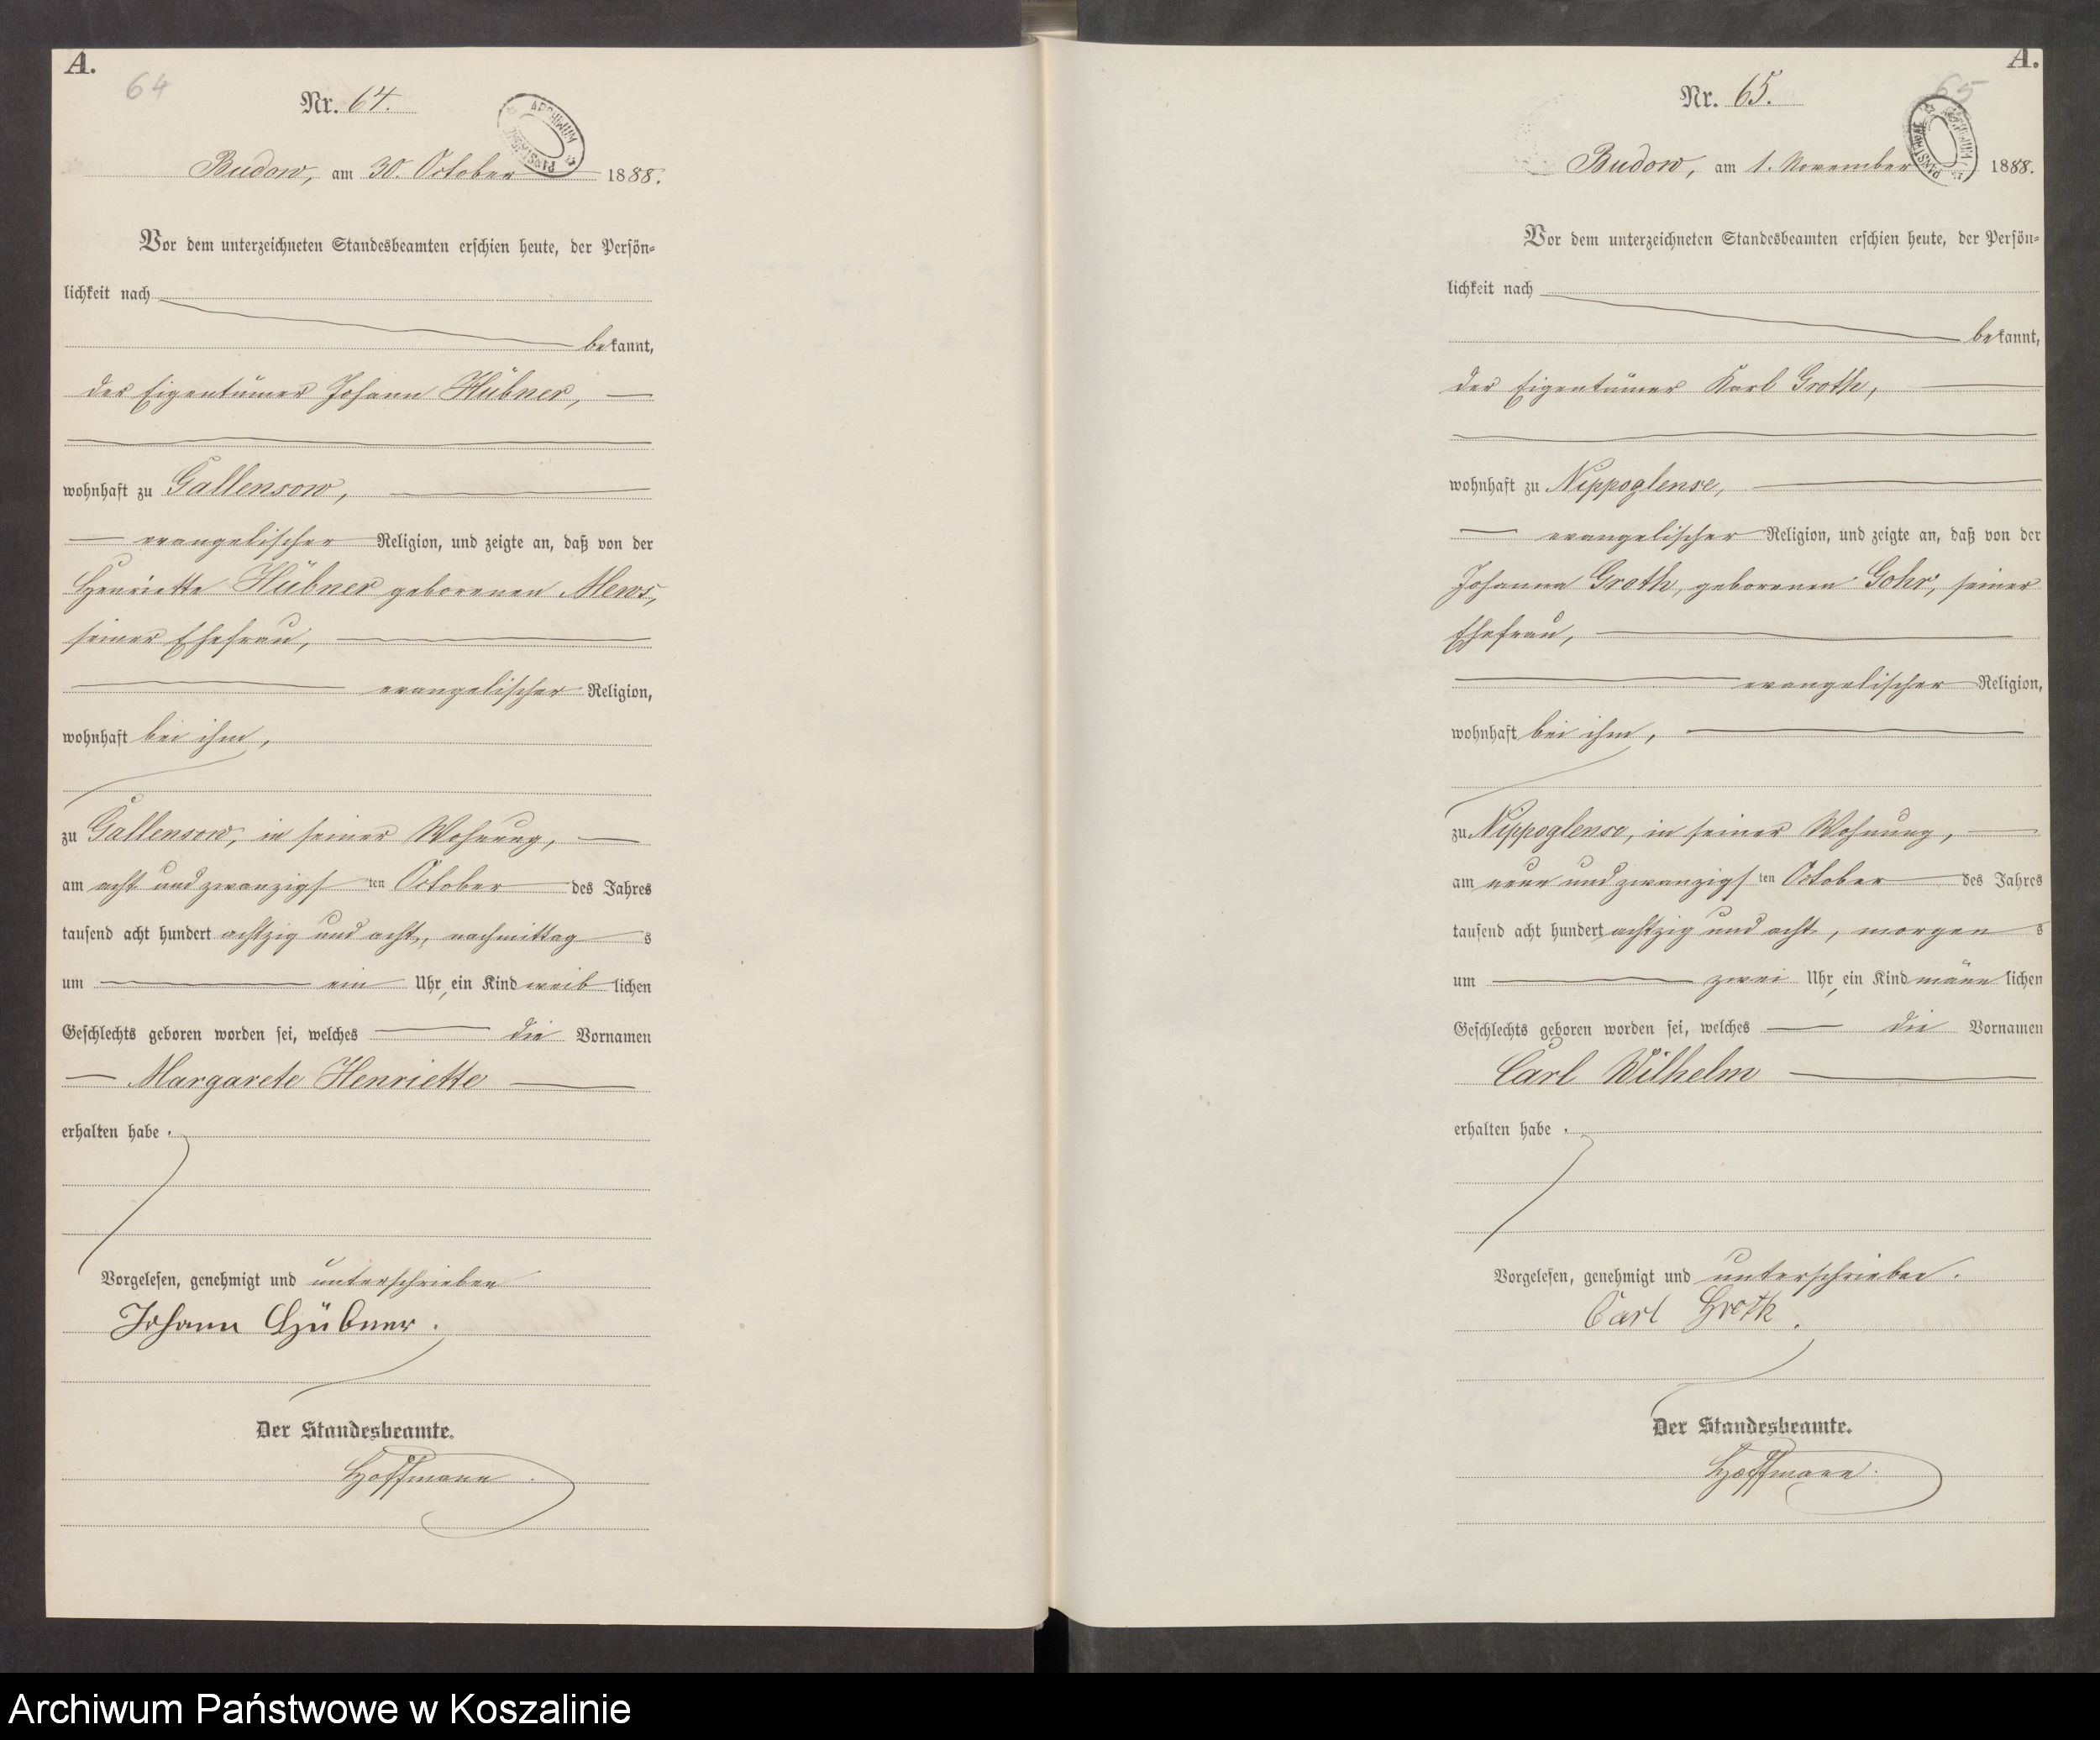 A.
64
Nr. 64.
ARCHIWUM PAŃSTWOWE
Budow, am 30. October 1888.
Vor dem unterzeichneten Standesbeamten erschien heute, der Persön-
lichkeit nach
bekannt,
der Eigentümer Johann Hübner,
wohnhaft zu Gallensow,
evangelischer Religion, und zeigte an, daß von der
Henriette Hübner geborenen Mews,
seiner Ehefrau,
evangelischer Religion,
wohnhaft bei ihm,
zu Gallensow, in seiner Wohnung,
am acht und zwanzigsten October des Jahres
tausend acht hundert achtzig und acht, nachmittags
um ein Uhr, ein Kind weiblichen
Geschlechts geboren worden sei, welches die Vornamen
Margarete Henriette
erhalten habe.
Vorgelesen, genehmigt und unterschrieben
Johann Hübner.
Der Standesbeamte.
Hoffmann.
A.
65
Nr. 65.
ARCHIWUM PAŃSTWOWE
Budow, am 1. November 1888.
Vor dem unterzeichneten Standesbeamten erschien heute, der Persön-
lichkeit nach
bekannt,
der Eigentümer Karl Groth,
wohnhaft zu Nippoglense,
evangelischer Religion, und zeigte an, daß von der
Johanna Groth, geborenen Gohr, seiner
Ehefrau,
evangelischer Religion,
wohnhaft bei ihm,
zu Nippoglense, in seiner Wohnung,
am neun und zwanzigsten October des Jahres
tausend acht hundert achtzig und acht, morgens
um zwei Uhr, ein Kind männlichen
Geschlechts geboren worden sei, welches die Vornamen
Carl Wilhelm
erhalten habe.
Vorgelesen, genehmigt und unterschrieben.
Carl Groth.
Der Standesbeamte.
Hoffmann.
Archiwum Państwowe w Koszalinie